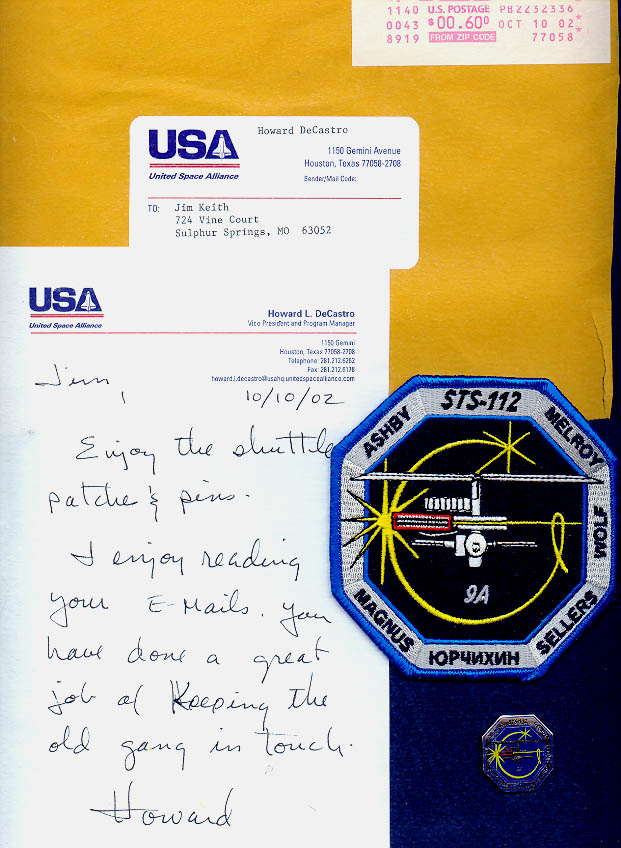 1140 U.S. POSTAGE PB2232336
0043 $00.60⁰ OCT 10 02
8919 FROM ZIP CODE 77058
USA
United Space Alliance
Howard DeCastro
1150 Gemini Avenue
Houston, Texas 77058-2708
Sender/Mail Code:
TO: Jim Keith
724 Vine Court
Sulphur Springs, MO 63052
USA
United Space Alliance
Howard L. DeCastro
Vice President and Program Manager
1150 Gemini
Houston, Texas 77058-2708
Telephone: 281.212.6262
Fax: 281.212.6178
howard.l.decastro@usahq.unitedspacealliance.com
Jim,
10/10/02
Enjoy the shuttle
patche's & pins.
I enjoy reading
your E-Mails. You
have done a great
job of Keeping the
old gang in touch.
Howard
STS-112
ASHBY
MELROY
WOLF
SELLERS
ЮРЧИХИН
MAGNUS
9A